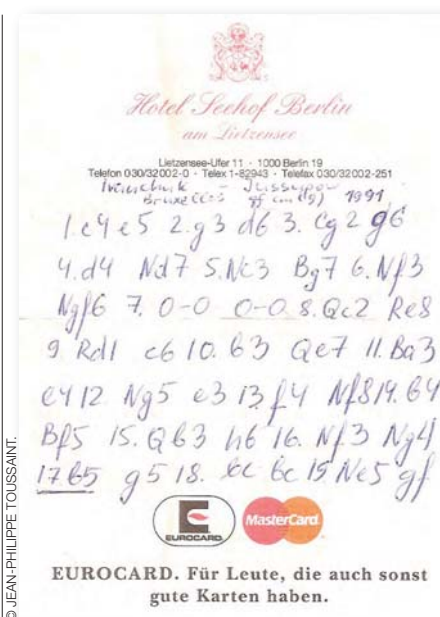 Hotel Seehof Berlin
am Lietzensee
Lietzensee-Ufer 11 · 1000 Berlin 19
Telefon 030/32002-0 · Telex 1-82943 · Telefax 030/32002-251
Ivanchuk – Jussupow
Bruxelles 1991
1. c4 e5 2. g3 d6 3. Cg2 g6
4. d4 Nd7 5. Nc3 Bg7 6. Nf3
Ngf6 7. 0-0 0-0 8. Qc2 Re8
9. Rd1 c6 10. b3 Qe7 11. Ba3
e4 12. Ng5 e3 13. f4 Nf8 14. b4
Bf5 15. Qb3 h6 16. Nf3 Ng4
17. b5 g5 18. bc bc 19 Ne5 gf
EUROCARD
MasterCard
EUROCARD. Für Leute, die auch sonst
gute Karten haben.
© JEAN-PHILIPPE TOUSSAINT.